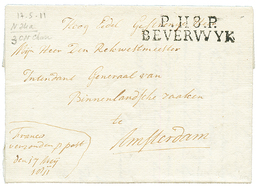 17-5-11
P.118.P.
BEVERWYK
Mijn Heer den Rekwestmeester
Intendant Generaal van
Binnenlandsche zaaken
te
Amsterdam
franco
verzonden p post
den 17 Meij
1811